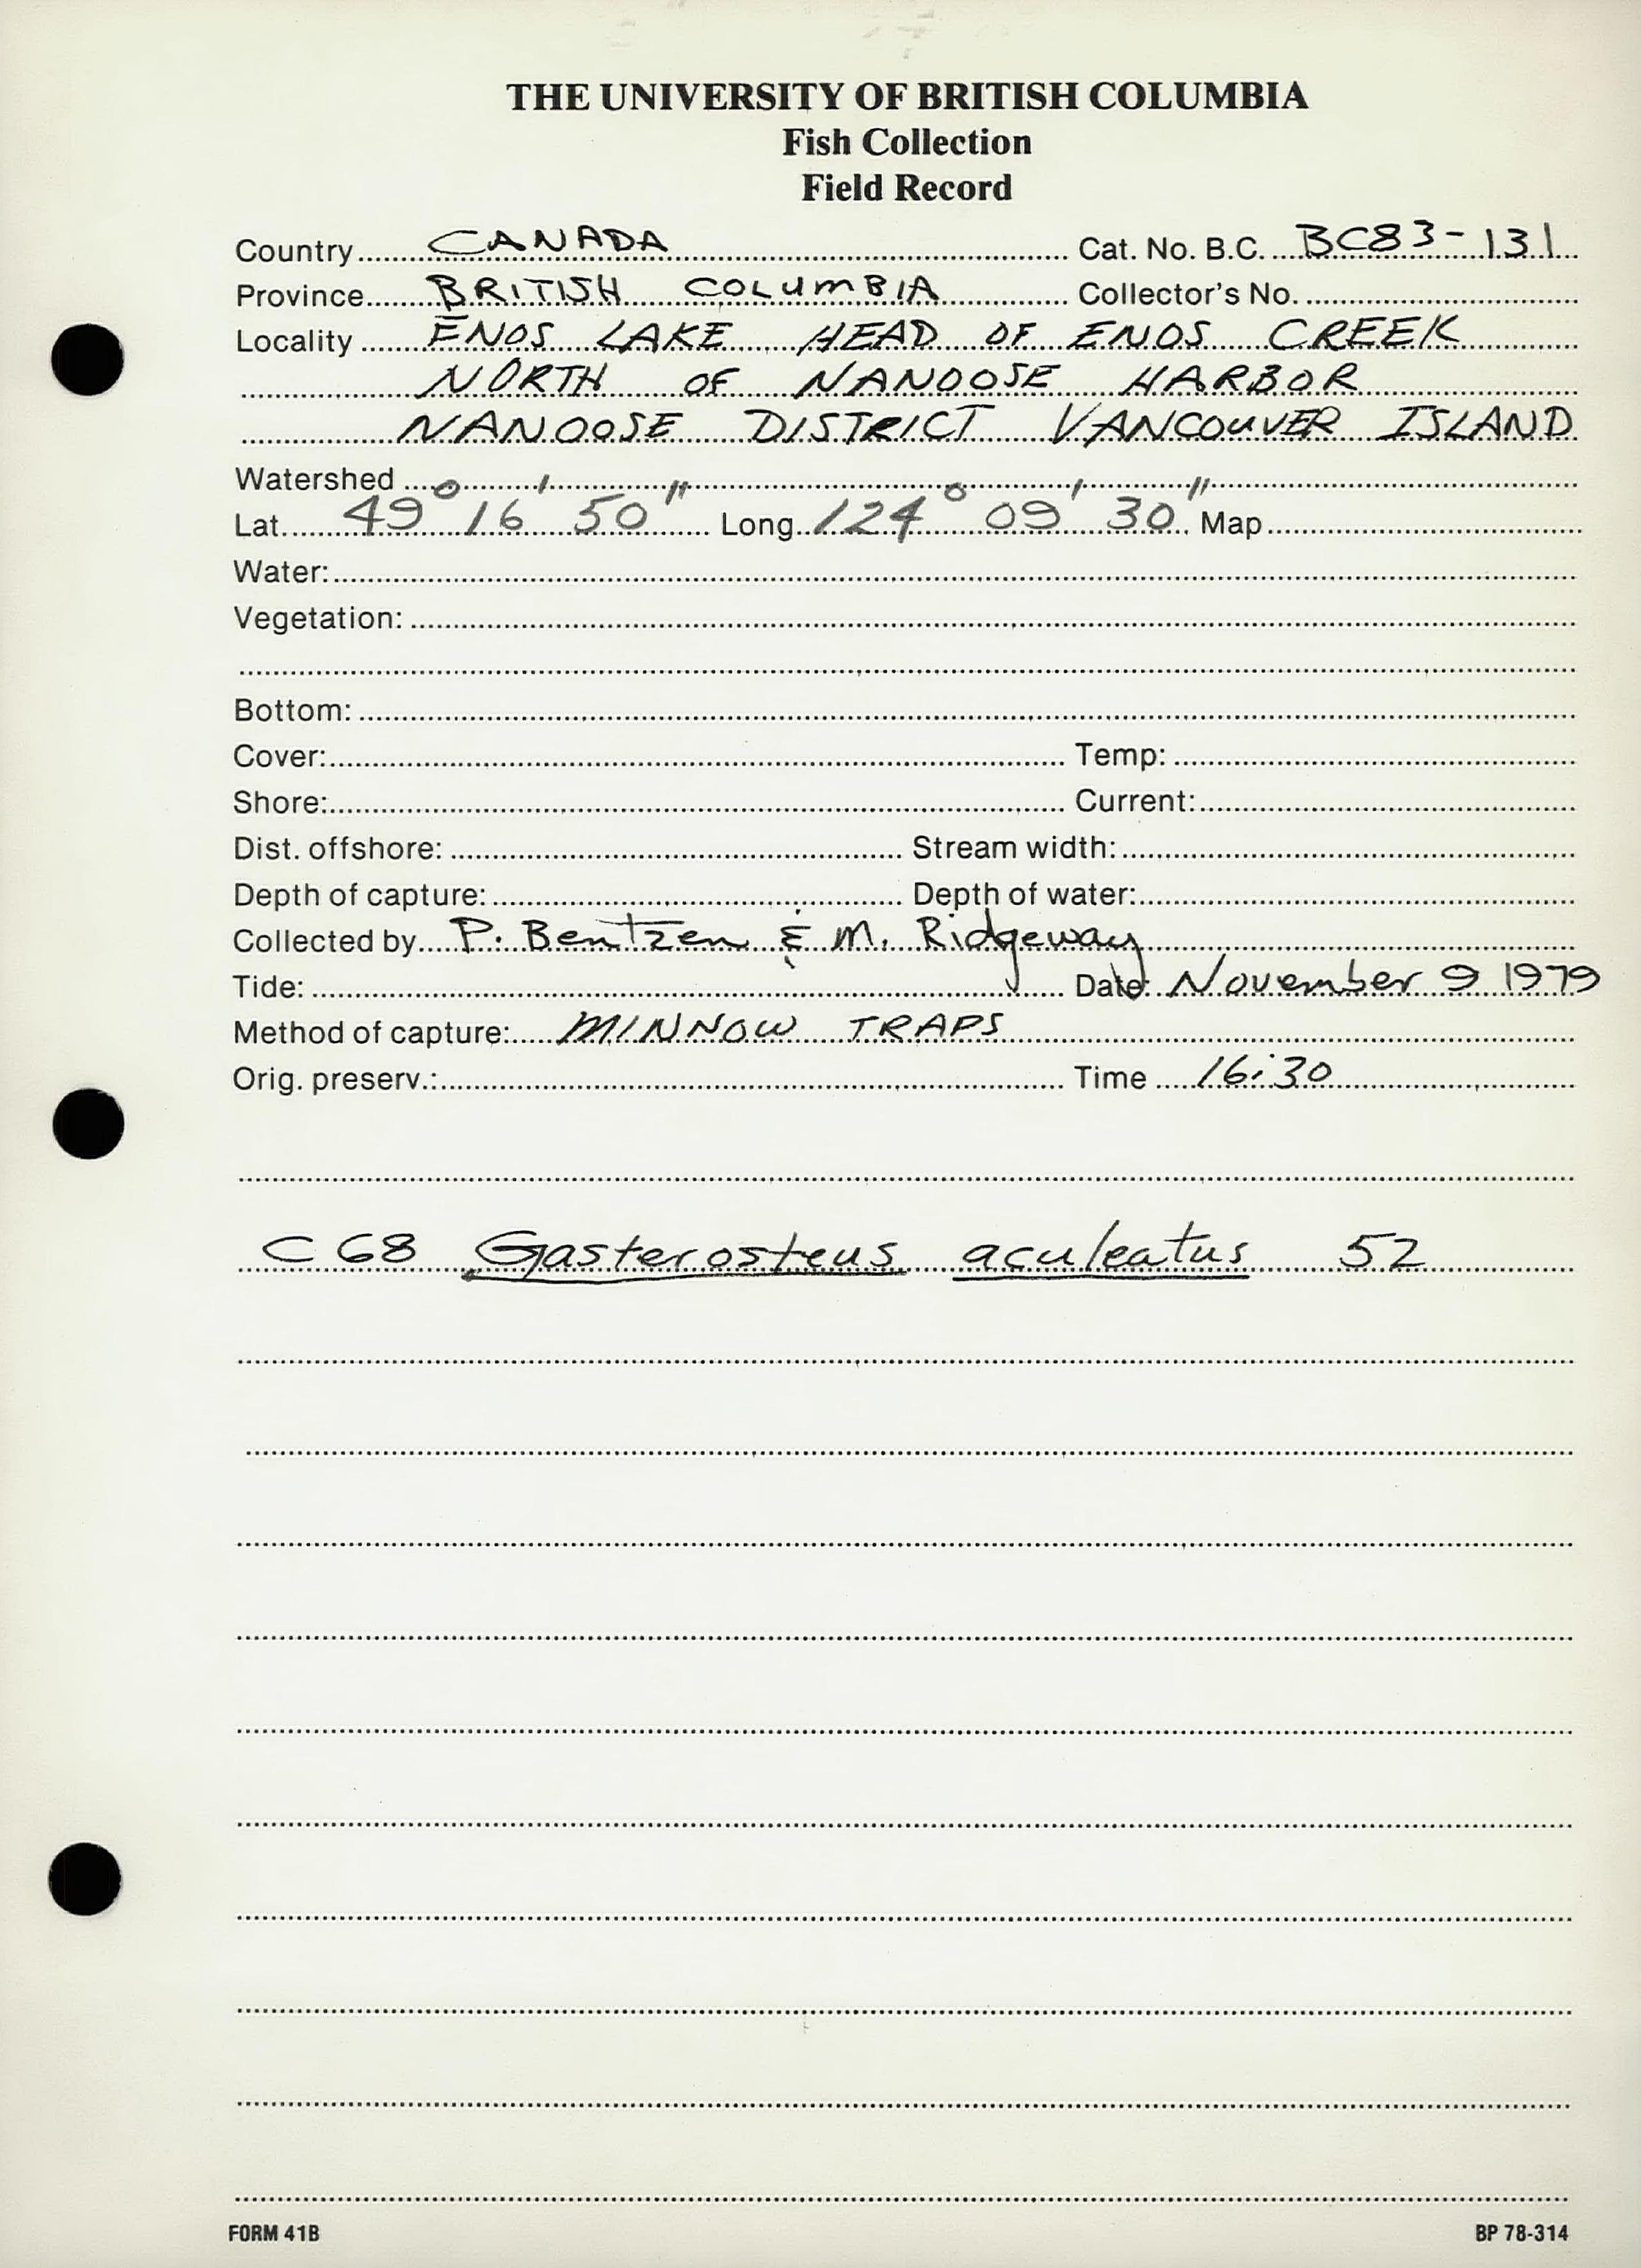 THE UNIVERSITY OF BRITISH COLUMBIA
Fish Collection
Field Record
Country CANADA Cat. No. B.C. BC83-131
Province BRITISH COLUMBIA Collector's No.
Locality ENOS LAKE HEAD OF ENOS CREEK
NORTH OF NANOOSE HARBOR
NANOOSE DISTRICT VANCOUVER ISLAND
Watershed
Lat. 49° 16' 50" Long. 124° 09' 30" Map
Water:
Vegetation:
Bottom:
Cover: Temp:
Shore: Current:
Dist. offshore: Stream width:
Depth of capture: Depth of water:
Collected by P. Bentzen & M. Ridgeway
Tide: Date: November 9 1979
Method of capture: MINNOW TRAPS
Orig. preserv.: Time 16:30
C68 Gasterosteus aculeatus 52
FORM 41B BP 78-314